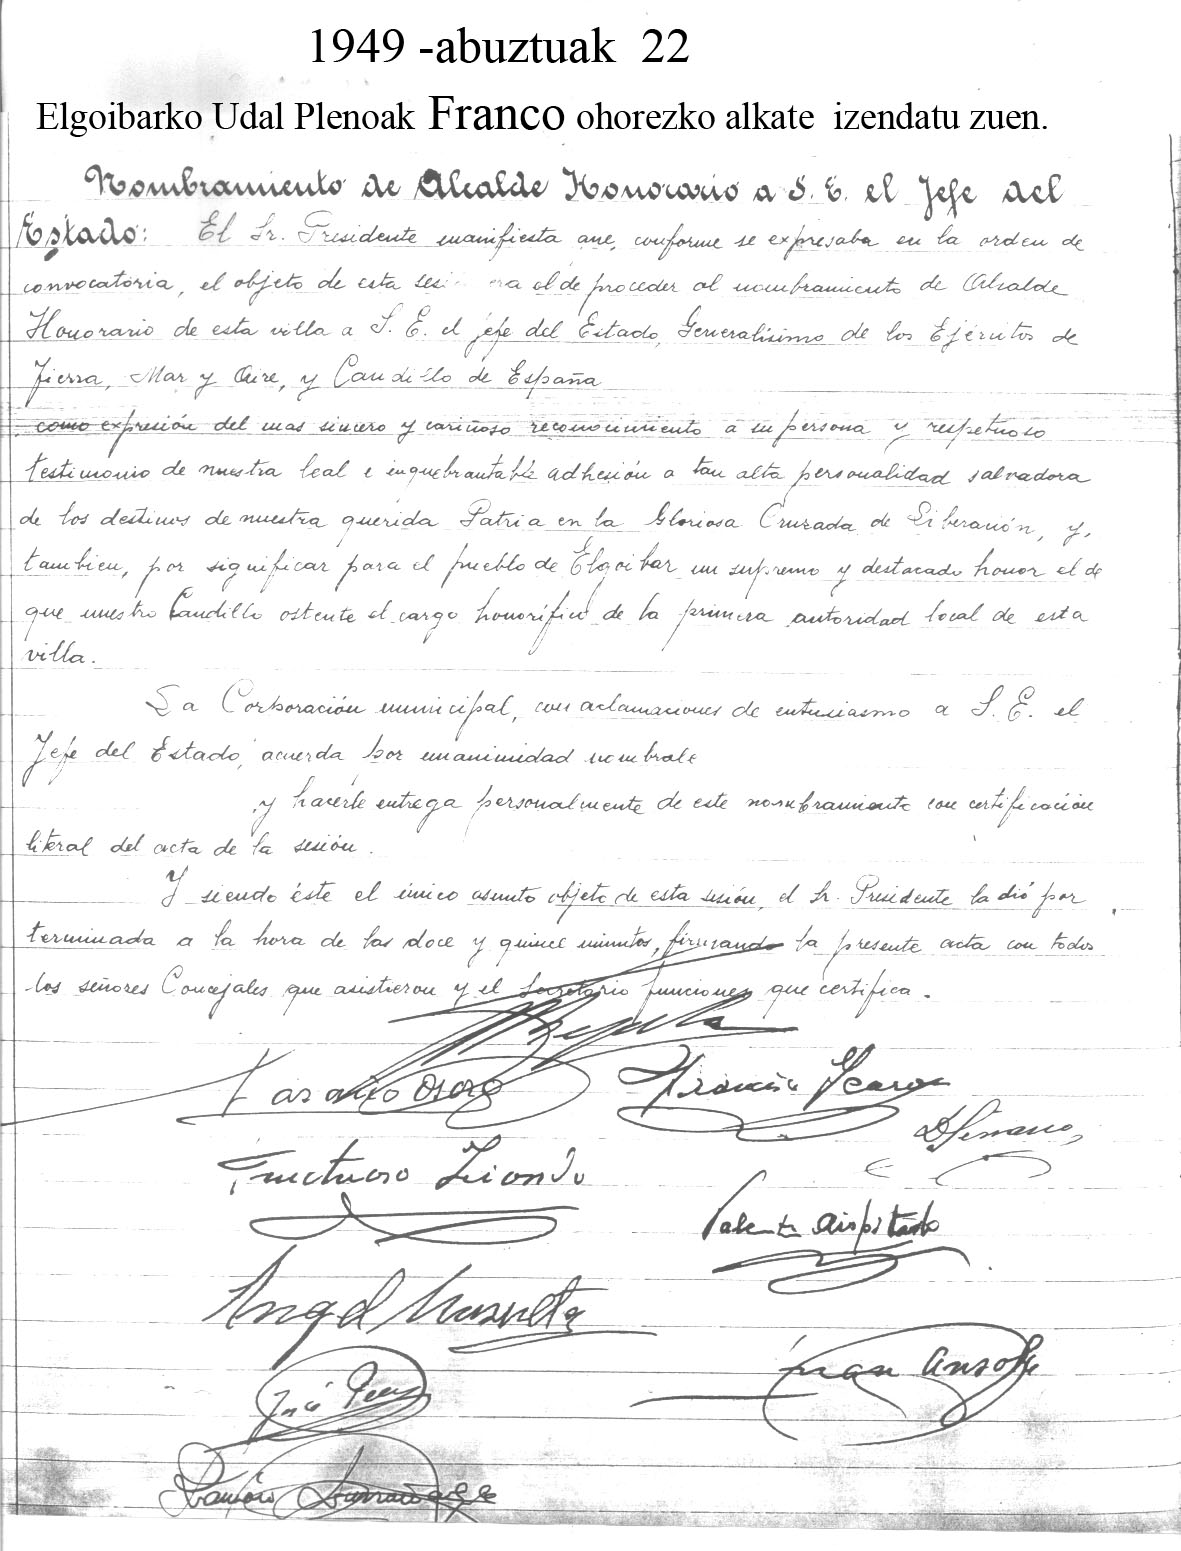 1949 -abuztuak 22
Elgoibarko Udal Plenoak Franco ohorezko alkate izendatu zuen.
Nombramiento de Alcalde Honorario a S. E. el Jefe del
Estado: El Sr. Presidente manifiesta que, conforme se expresaba en la orden de
convocatoria, el objeto de esta sesi era el de proceder al nombramiento de Alcalde
Honorario de esta villa a S. E. el Jefe del Estado, Generalísimo de los Ejércitos de
Tierra, Mar y Aire, y Caudillo de España
como expresión del mas sincero y cariñoso reconocimiento a su persona y respetuoso
testimonio de nuestra leal e inquebrantable adhesión a tan alta personalidad salvadora
de los destinos de nuestra querida Patria en la Gloriosa Cruzada de Liberación, y,
tambien, por significar para el pueblo de Elgoibar un supremo y destacado honor el de
que nuestro Caudillo ostente el cargo honorífico de la primera autoridad local de esta
villa.
La Corporación municipal, con aclamaciones de entusiasmo a S. E. el
Jefe del Estado, acuerda por unanimidad nombrale
y hacerle entrega personalmente de este nombramiento con certificación
literal del acta de la sesión.
Y siendo éste el único asunto objeto de esta sesión, el Sr. Presidente la dió por
terminada a la hora de las doce y quince minutos, firmando la presente acta con todos
los señores Concejales que asistieron y el Secretario funciones que certifica.
Fructuoso
Angel
José
Juan